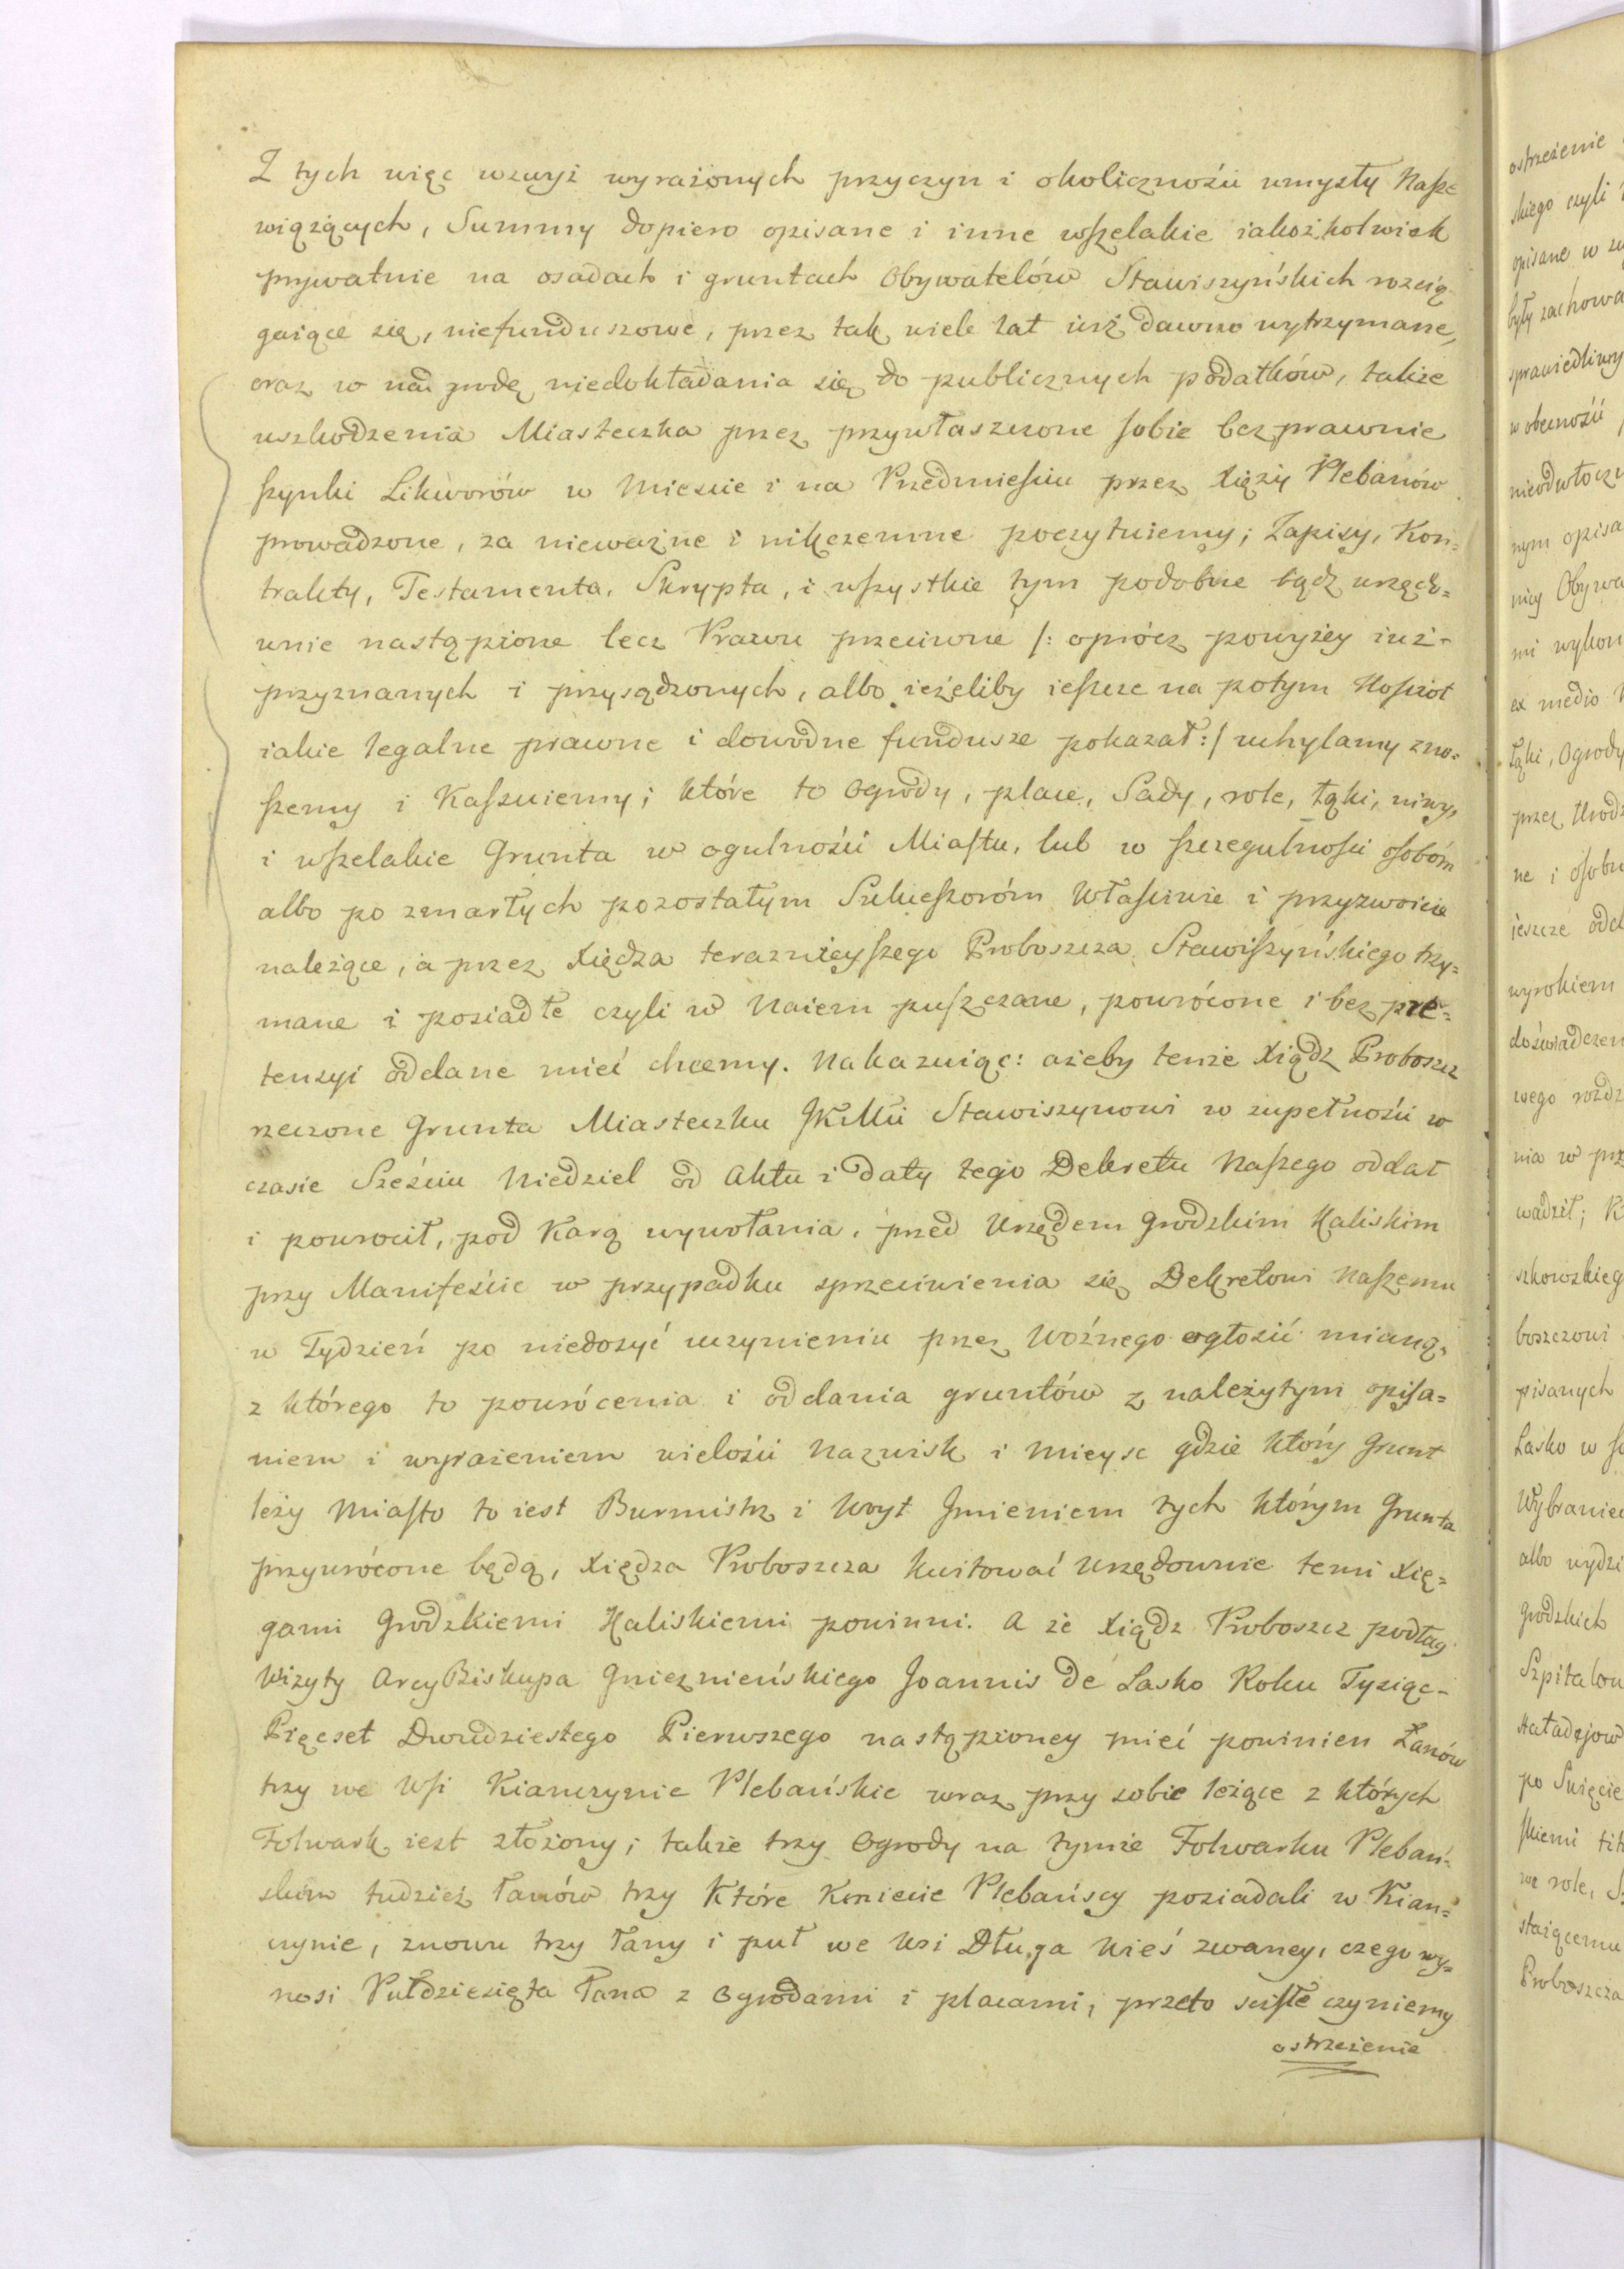 Z tych więc wzwyż wyrażonych przyczyn i okolicznośći umysły Nasze
wiążących, Summy dopiero opisane i inne wszelakie iakożkolwiek
prywatnie na osadach i gruntach Obywatelów Stawiszyńskich rozcią-
gaiące się, niefunduszowe, przez tak wiele lat iuż dawno wytrzymane,
oraz w nadgrodę niedokładania się do publicznych podatków, także
uszkodzenia Miasteczka przez przywłaszczone sobie bezprawnie
szynki Likworów w Mieście i na Przedmieściu przez Xięży Plebanów
prowadzone, za nieważne i nikczemne poczytuiemy; Zapisy, Kon=
trakty, Testamenta, Skrypta, i wszystkie tym podobne bądz urzędo=
wnie nastąpione lecz Prawu przeciwne /: oprócz powyżey iuż-
przyznanych i przysądzonych, albo ieżeliby ieszcze na potym Kościoł
iakie legalne prawne i dowodne fundusze pokazał :/ uchylamy zno=
szemy i Kassuiemy; które to Ogrody, place, Sady, role, łąki, niwy,
i wszelakie Grunta w ogulnośći Miastu, lub w szczegulności osobóm
albo po zmarłych pozostałym Sukcessoróm właściwie i przyzwoicie
należące, a przez Xiędza teraznieyszego Proboszcza Stawiszyńskiego trzy=
mane i posiadłe czyli w Naiem puszczane, powrócone i bez pre=
tensyi oddane mieć chcemy. Nakazuiąc: ażeby tenże Xiądz Proboszcz
rzeczone Grunta Miasteczku JKMci Stawiszynowi w zupełnośći w
czasie Sześciu Niedziel od Aktu i daty tego Dekretu Naszego oddał
i powrocił, pod Karą wywołania, przed Urzędem Grodzkim Kaliskim
przy Manifeście w przypadku sprzeciwienia się Dekretowi Naszemu
w Tydzień po niedosyć uczynieniu przez Woźnego ogłosić mianą,
z którego to powrócenia i oddania gruntów z należytym opisa=
niem i wyrażeniem wielośći Nazwisk i mieysc gdzie który Grunt
leży Miasto to iest Burmistrz i Woyt Jmieniem tych którym Grunta
przywrócone będą, Xiędza Proboszcza kwitować Urzędownie temi Xię=
gami Grodzkiemi Kaliskiemi powinni. A że Xiądz Proboszcz podług
Wizyty ArcyBiskupa Gnieznieńskiego Joannis de Lasko Roku Tysiąc-
Pięcset Dwudziestego Pierwszego nastąpioney mieć powinien Łanów
trzy we Wsi Kianczynie Plebańskie wraz przy sobie leżące z których
Folwark iest złożony; także trzy Ogrody na tymże Folwarku Plebań-
skim tudzież Łanów trzy Które Kmiecie Plebańscy posiadali w Kian=
czynie, znowu trzy Łany i puł we Wsi Długa Wieś zwaney, czego wy=
nosi Pułdziesięta Łana z Ogrodami i placami, przeto scisłe czyniemy
ostrzeżenie
ostrzeżenie
skiego czyli
opisane w
były zachowa
sprawiedliwy
w obecnośći
nieodwłoczn
nym opisa
nicy Obywa
mi wykon
ex medio
Łąki, Ogrody
przez Urodz
ne i osobn
jeszcze odd
wyrokiem
doświadczen
wego rozdz
nia w prz
wadził; K
szkowskieg
boszczowi
pisanych
Lasko w
Wybraniec
albo wydzi
Grodzkich
Szpitalow
po Swięcie
skiemi
we role,
staiącemu
Proboszcza